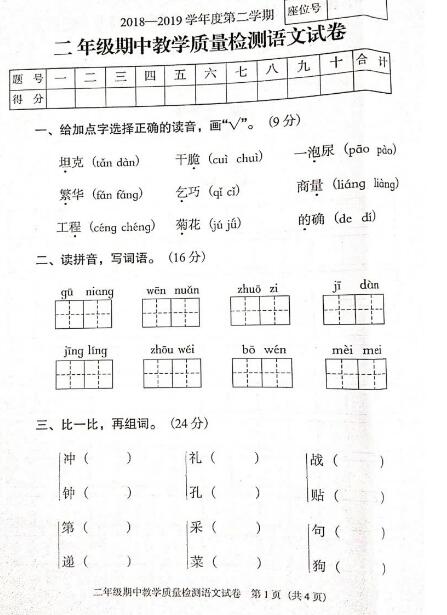 2018—2019学年度第二学期 座位号
二年级期中教学质量检测语文试卷
题 号 一 二 三 四 五 六 七 八 九 十 合 计
得 分
一、给加点字选择正确的读音，画“√”。（9分）
坦克（tǎn dàn） 干脆（cuì chuì） 一泡尿（pāo pào）
繁华（fán fáng） 乞巧（qǐ cǐ） 商量（liáng liàng）
工程（céng chéng） 菊花（jú jǘ） 的确（de dí）
二、读拼音，写词语。（16分）
gū niang wēn nuǎn zhuō zi jī dàn
jīng líng zhōu wéi bō wén mèi mei
三、比一比，再组词。（24分）
冲（ ） 礼（ ） 战（ ）
钟（ ） 孔（ ） 贴（ ）
第（ ） 采（ ） 句（ ）
递（ ） 菜（ ） 狗（ ）
二年级期中教学质量检测语文试卷 第1页（共4页）